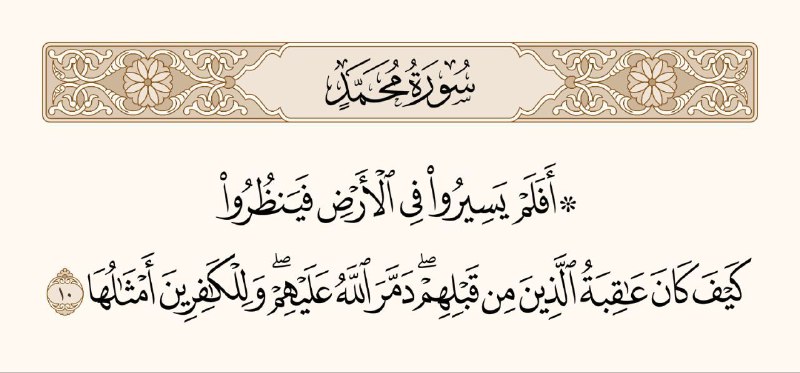 سُورَةُ مُحَمَّدٍ
۞ أَفَلَمْ يَسِيرُوا۟ فِى ٱلْأَرْضِ فَيَنظُرُوا۟
كَيْفَ كَانَ عَـٰقِبَةُ ٱلَّذِينَ مِن قَبْلِهِمْ ۖ دَمَّرَ ٱللَّهُ عَلَيْهِمْ ۖ وَلِلْكَـٰفِرِينَ أَمْثَـٰلُهَا ١٠